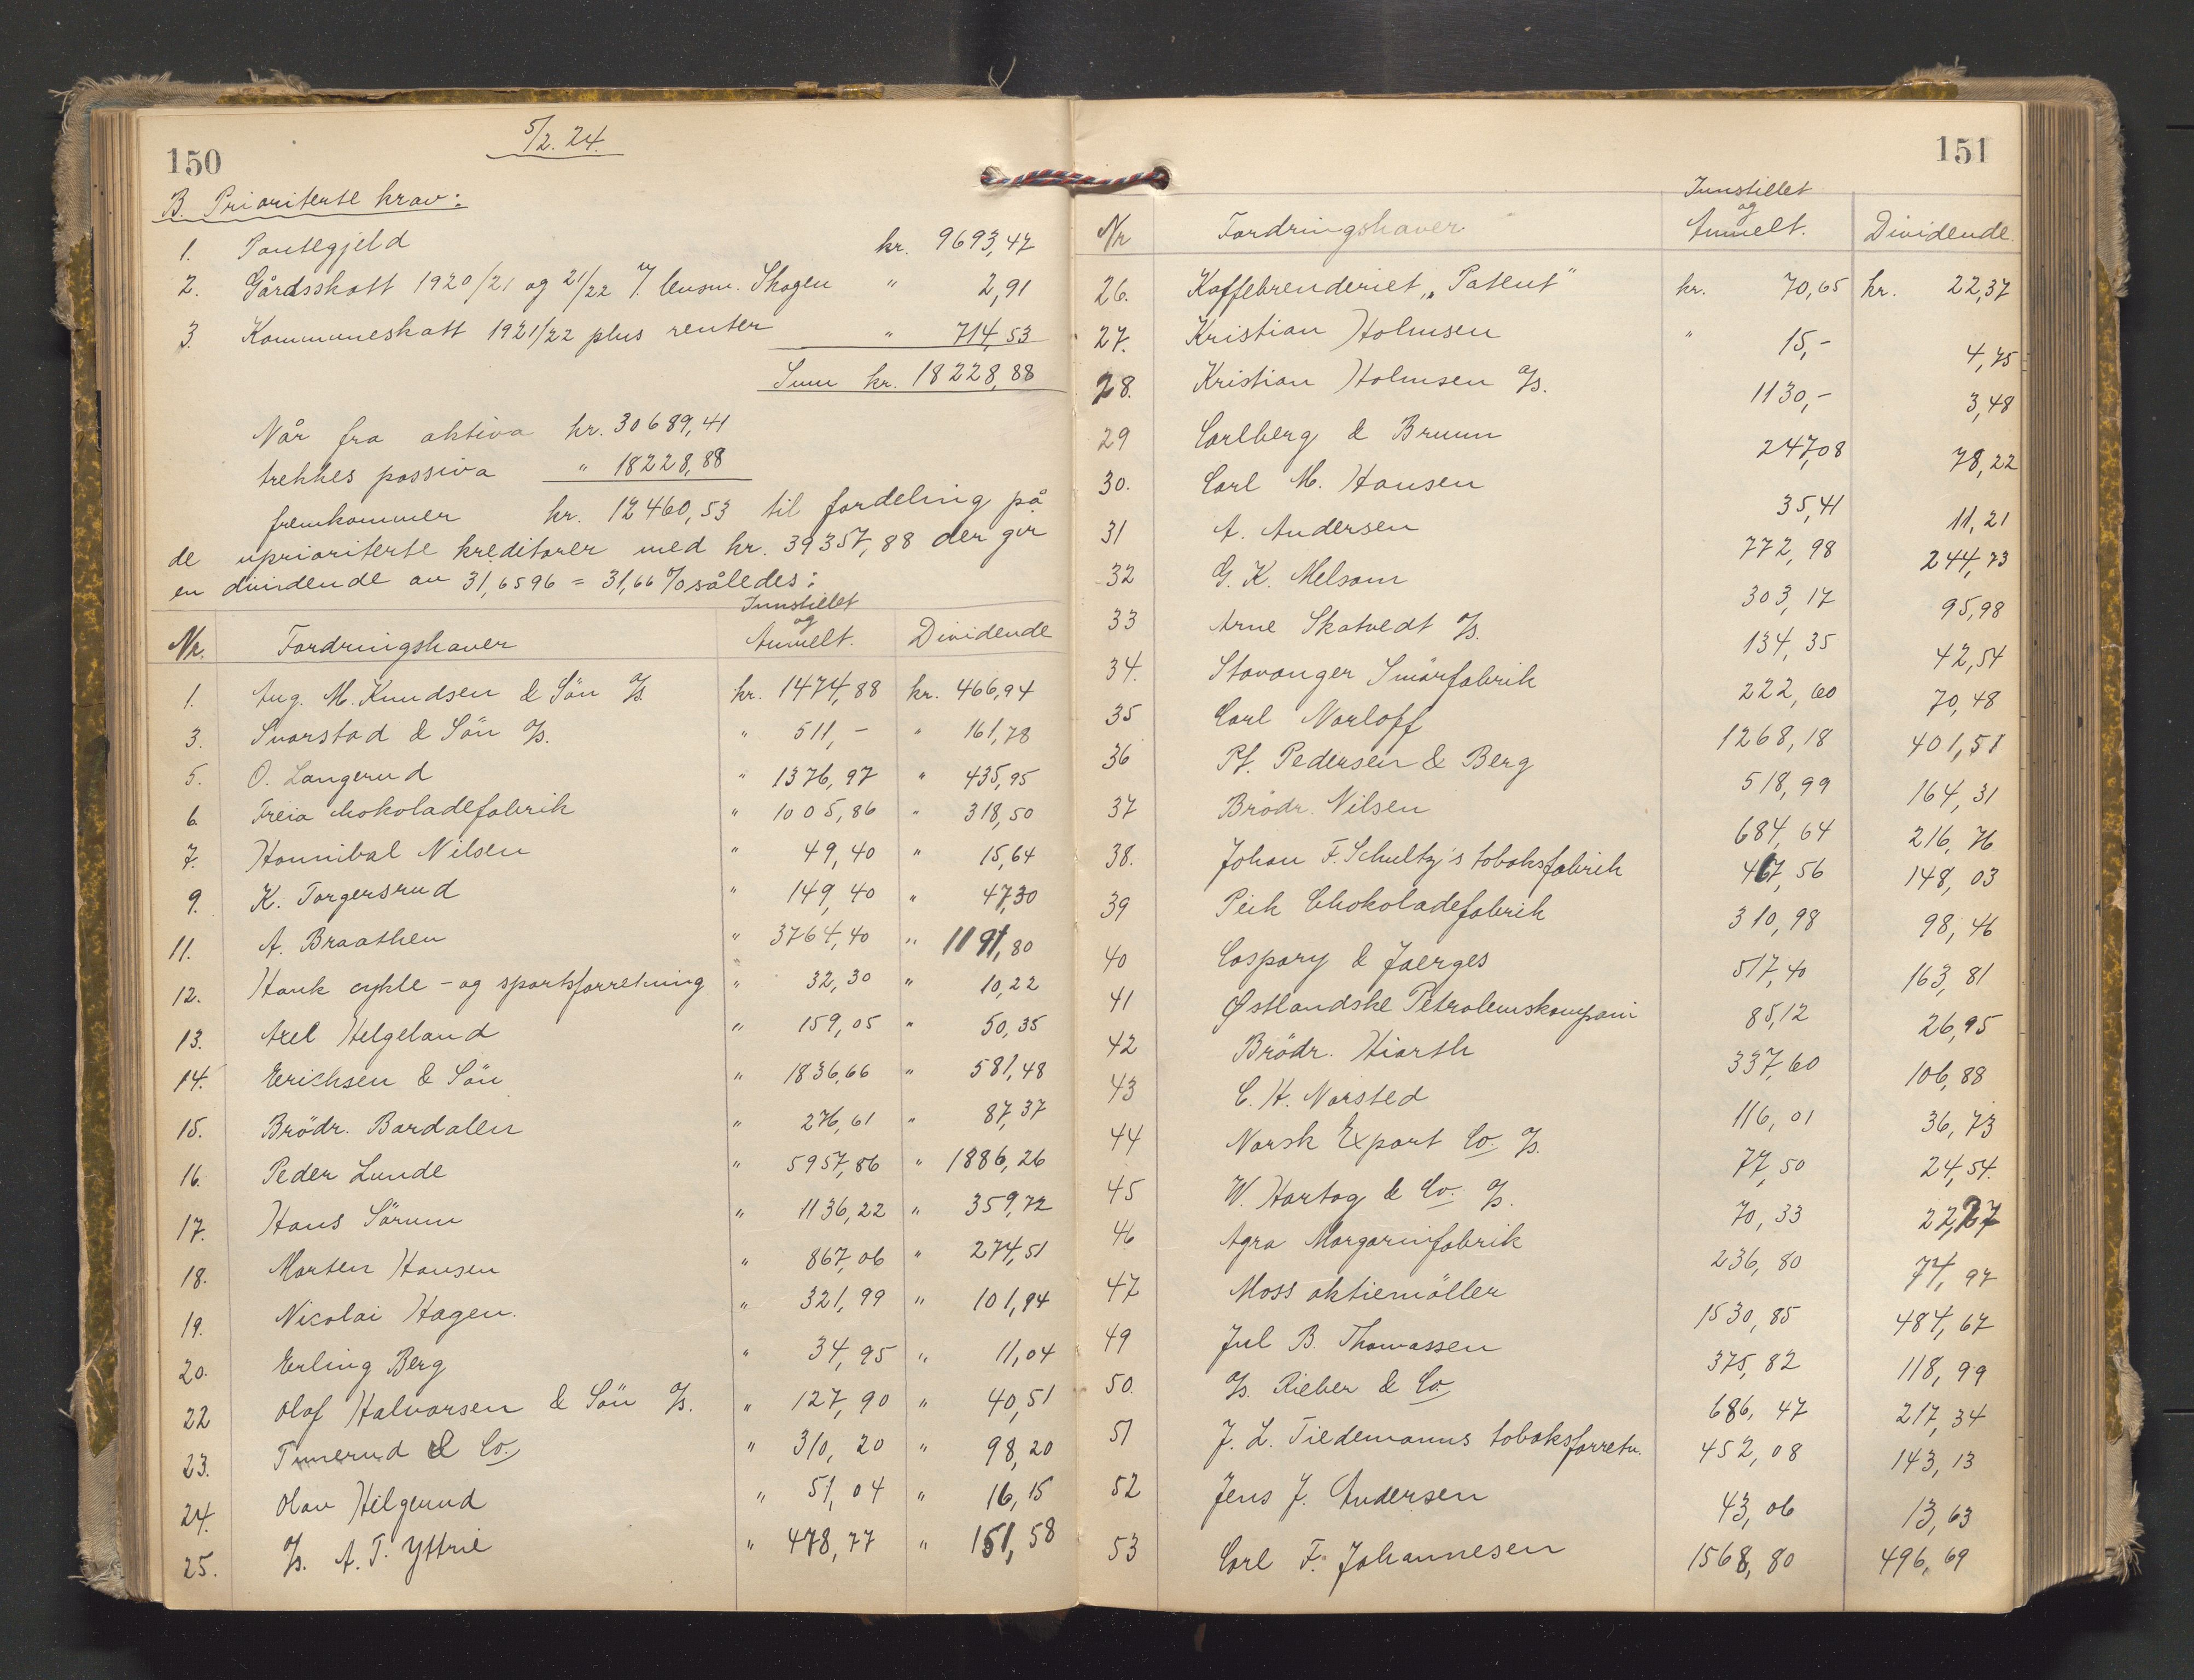 150
5/2. 24.
B. Prioriterte krav:
1. Pantegjeld kr. 9693,47
2. Gårdsskatt 1920/21 og 21/22 lensm. Skogen " 2,91
3. Kommuneskatt 1921/22 plus renter " 714,53
Sum kr. 18228,88
Når fra aktiva kr. 30689,41
trekkes passiva " 18228,88
fremkommer kr. 12460,53 til fordeling på
de uprioriterte kreditorer med kr. 39357,88 der gir
en dividende av 31,6596 = 31,66 % således:
Nr. Fordringshaver Innstillet og Anmelt. Dividende
1. Aug. M. Knudsen & Sön A/S kr. 1474,88 kr. 466,94
3. Svarstad & Sön A/S. " 511,- " 161,78
5. O. Langerud " 1376,97 " 435,95
6. Freia chokoladefabrik " 1005,86 " 318,50
7. Hannibal Nilsen " 49,40 " 15,64
9. K. Torgersrud " 149,40 " 47,30
11. A. Braathen " 3764,40 " 1191,80
12. Hauk cykle- og sportsforretning " 32,30 " 10,22
13. Axel Helgeland " 159,05 " 50,35
14. Erichsen & Sön " 1836,66 " 581,48
15. Brödr. Bardalen " 276,61 " 87,37
16. Peder Lunde " 5957,86 " 1886,26
17. Hans Sörum " 1136,22 " 359,72
18. Marten Hansen " 867,06 " 274,51
19. Nicolai Hagen. " 321,99 " 101,94
20. Erling Berg " 34,95 " 11,04
22 Olaf Halvorsen & Sön A/S. " 127,90 " 40,51
23. Tunerud & Co. " 310,20 " 98,20
24. Olav Hilgerud " 51,04 " 16,15
25. A/S. A. T. Yttrie " 478,77 " 151,58
151
Nr Fordringshaver Innstillet og Anmelt. Dividende.
26. Kaffebrenderiet "Patent" kr. 70,65 kr. 22,37
27. Kristian Holmsen " 15,- 4,75
28. Kristian Holmsen A/S. 1130,- 3,48
29 Carlberg & Bruun 247,08 78,22
30. Carl M. Hansen 35,41 11,21
31 A. Andersen 772,98 244,73
32 G. K. Melsom 303,17 95,98
33 Arne Skatvedt A/S. 134,35 42,54
34. Stavanger Smörfabrik 222,60 70,48
35 Carl Norloff 1268,18 401,51
36 Pf. Pedersen & Berg 518,99 164,31
37 Brödr. Nilsen 684,64 216,76
38. Johan F. Schultz's tobaksfabrik 467,56 148,03
39 Peik Chokoladefabrik 310,98 98,46
40 Caspary & Jaerges 517,40 163,81
41 Østlandske Petroleumskompani 85,12 26,95
42 Brödr. Hiorth 337,60 106,88
43 C. H. Norsted 116,01 36,73
44 Norsk Export Co. A/S. 77,50 24,54.
45 W. Hartog & Co. A/S. 70,33 22,27
46 Agra Margarinfabrik 236,80 74,97
47 Moss aktiemöller 1530,85 484,67
49 Jul B. Thomassen 375,82 118,99
50. A/S. Rieber & Co. 686,47 217,34
51 J. L. Tiedemanns tobaksforretn. 452,08 143,13
52 Jens J. Andersen 43,06 13,63
53 Carl F. Johannesen 1568,80 496,69